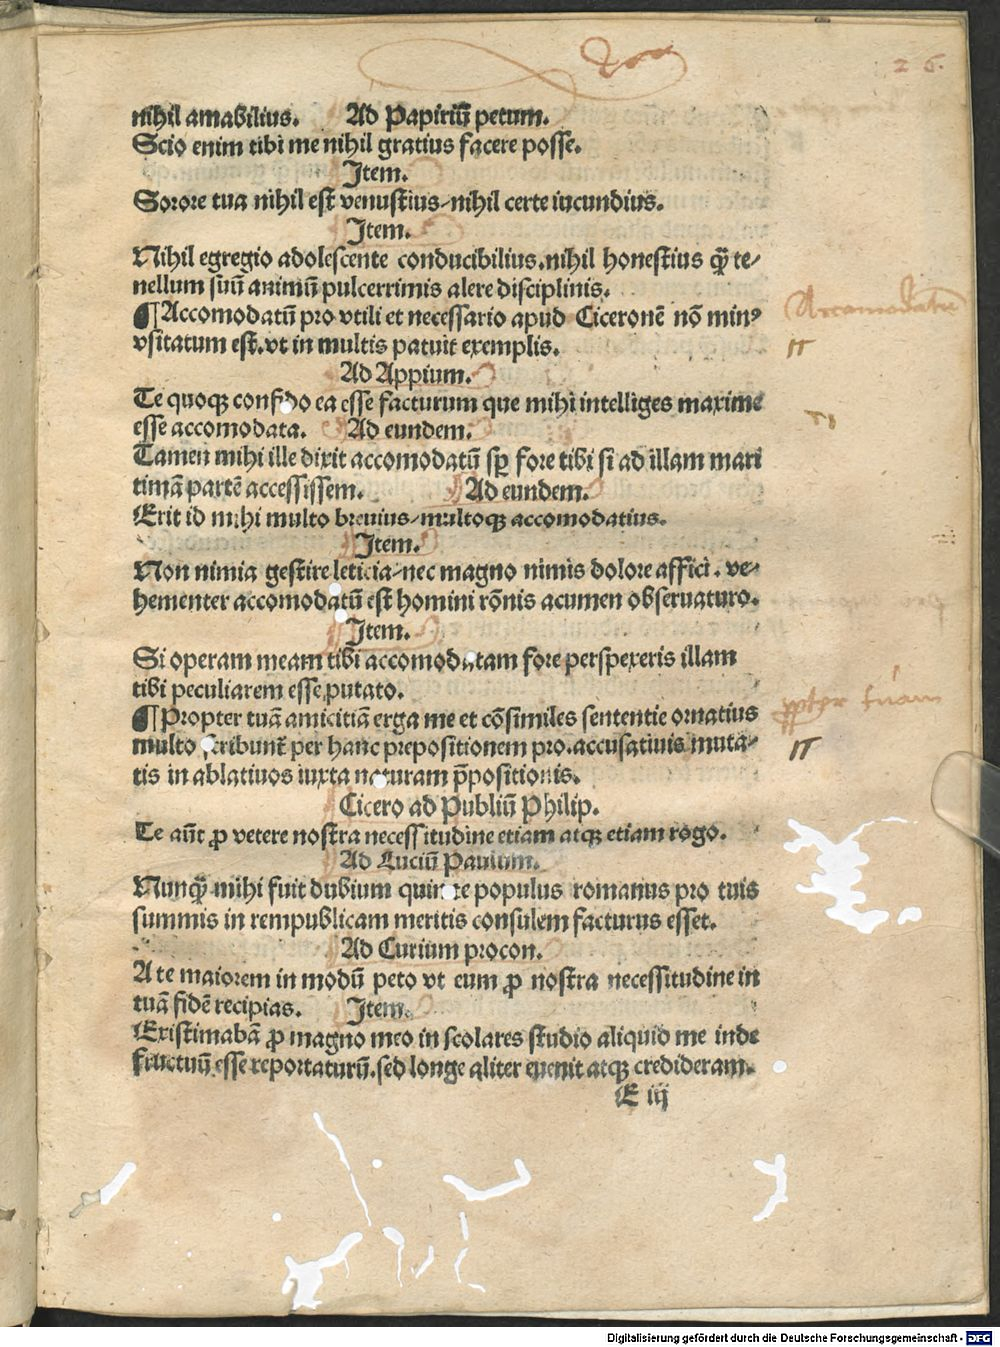 26.
nihil amabilius. Ad Papiriū petum.
Scio enim tibi me nihil gratius facere posse.
Item.
Sorore tua nihil est venustius/nihil certe iucundius.
Item.
Nihil egregio adolescente conducibilius.nihil honestius q̄ te/
nellum suū animū pulcerrimis alere disciplinis.
¶Accomodatū pro vtili et necessario apud Ciceronē nō minꝰ
vsitatum est.vt in multis patuit exemplis.
Accomodatū
Ad Appium.
Te quoqꝫ confido ea esse facturum que mihi intelliges maxime
esse accomodata. Ad eundem.
Tamen mihi ille dixit accomodatū sꝑ fore tibi si ad illam mari
timā partē accessissem. Ad eundem.
Erit id mihi multo breuius/multoqꝫ accomodatius.
Item.
Non nimia gestire leticia/nec magno nimis dolore affici. ve/
hementer accomodatū est homini rōnis acumen obseruaturo.
Item.
Si operam meam tibi accomodatam fore perspexeris illam
tibi peculiarem esse putato.
¶Propter tuā amicitiā erga me et cōsimiles sententie ornatius
multo scribunt̄ per hanc prepositionem pro.accusatiuis muta/
tis in ablatiuos iuxta naturam p̄positionis.
ꝓpter tuam
Cicero ad Publiū Philip.
Te aūt ꝓ vetere nostra necessitudine etiam atqꝫ etiam rogo.
Ad Luciū Paulum.
Nunq̄ mihi fuit dubium quin te populus romanus pro tuis
summis in rempublicam meritis consulem facturus esset.
Ad Curium procon.
A te maiorem in modū peto vt eum ꝓ nostra necessitudine in
tuā fidē recipias. Item.
Existimabā ꝓ magno meo in scolares studio aliquid me inde
fructuū esse reportaturū.sed longe aliter euenit atqꝫ credideram.
E iij
Digitalisierung gefördert durch die Deutsche Forschungsgemeinschaft - DFG